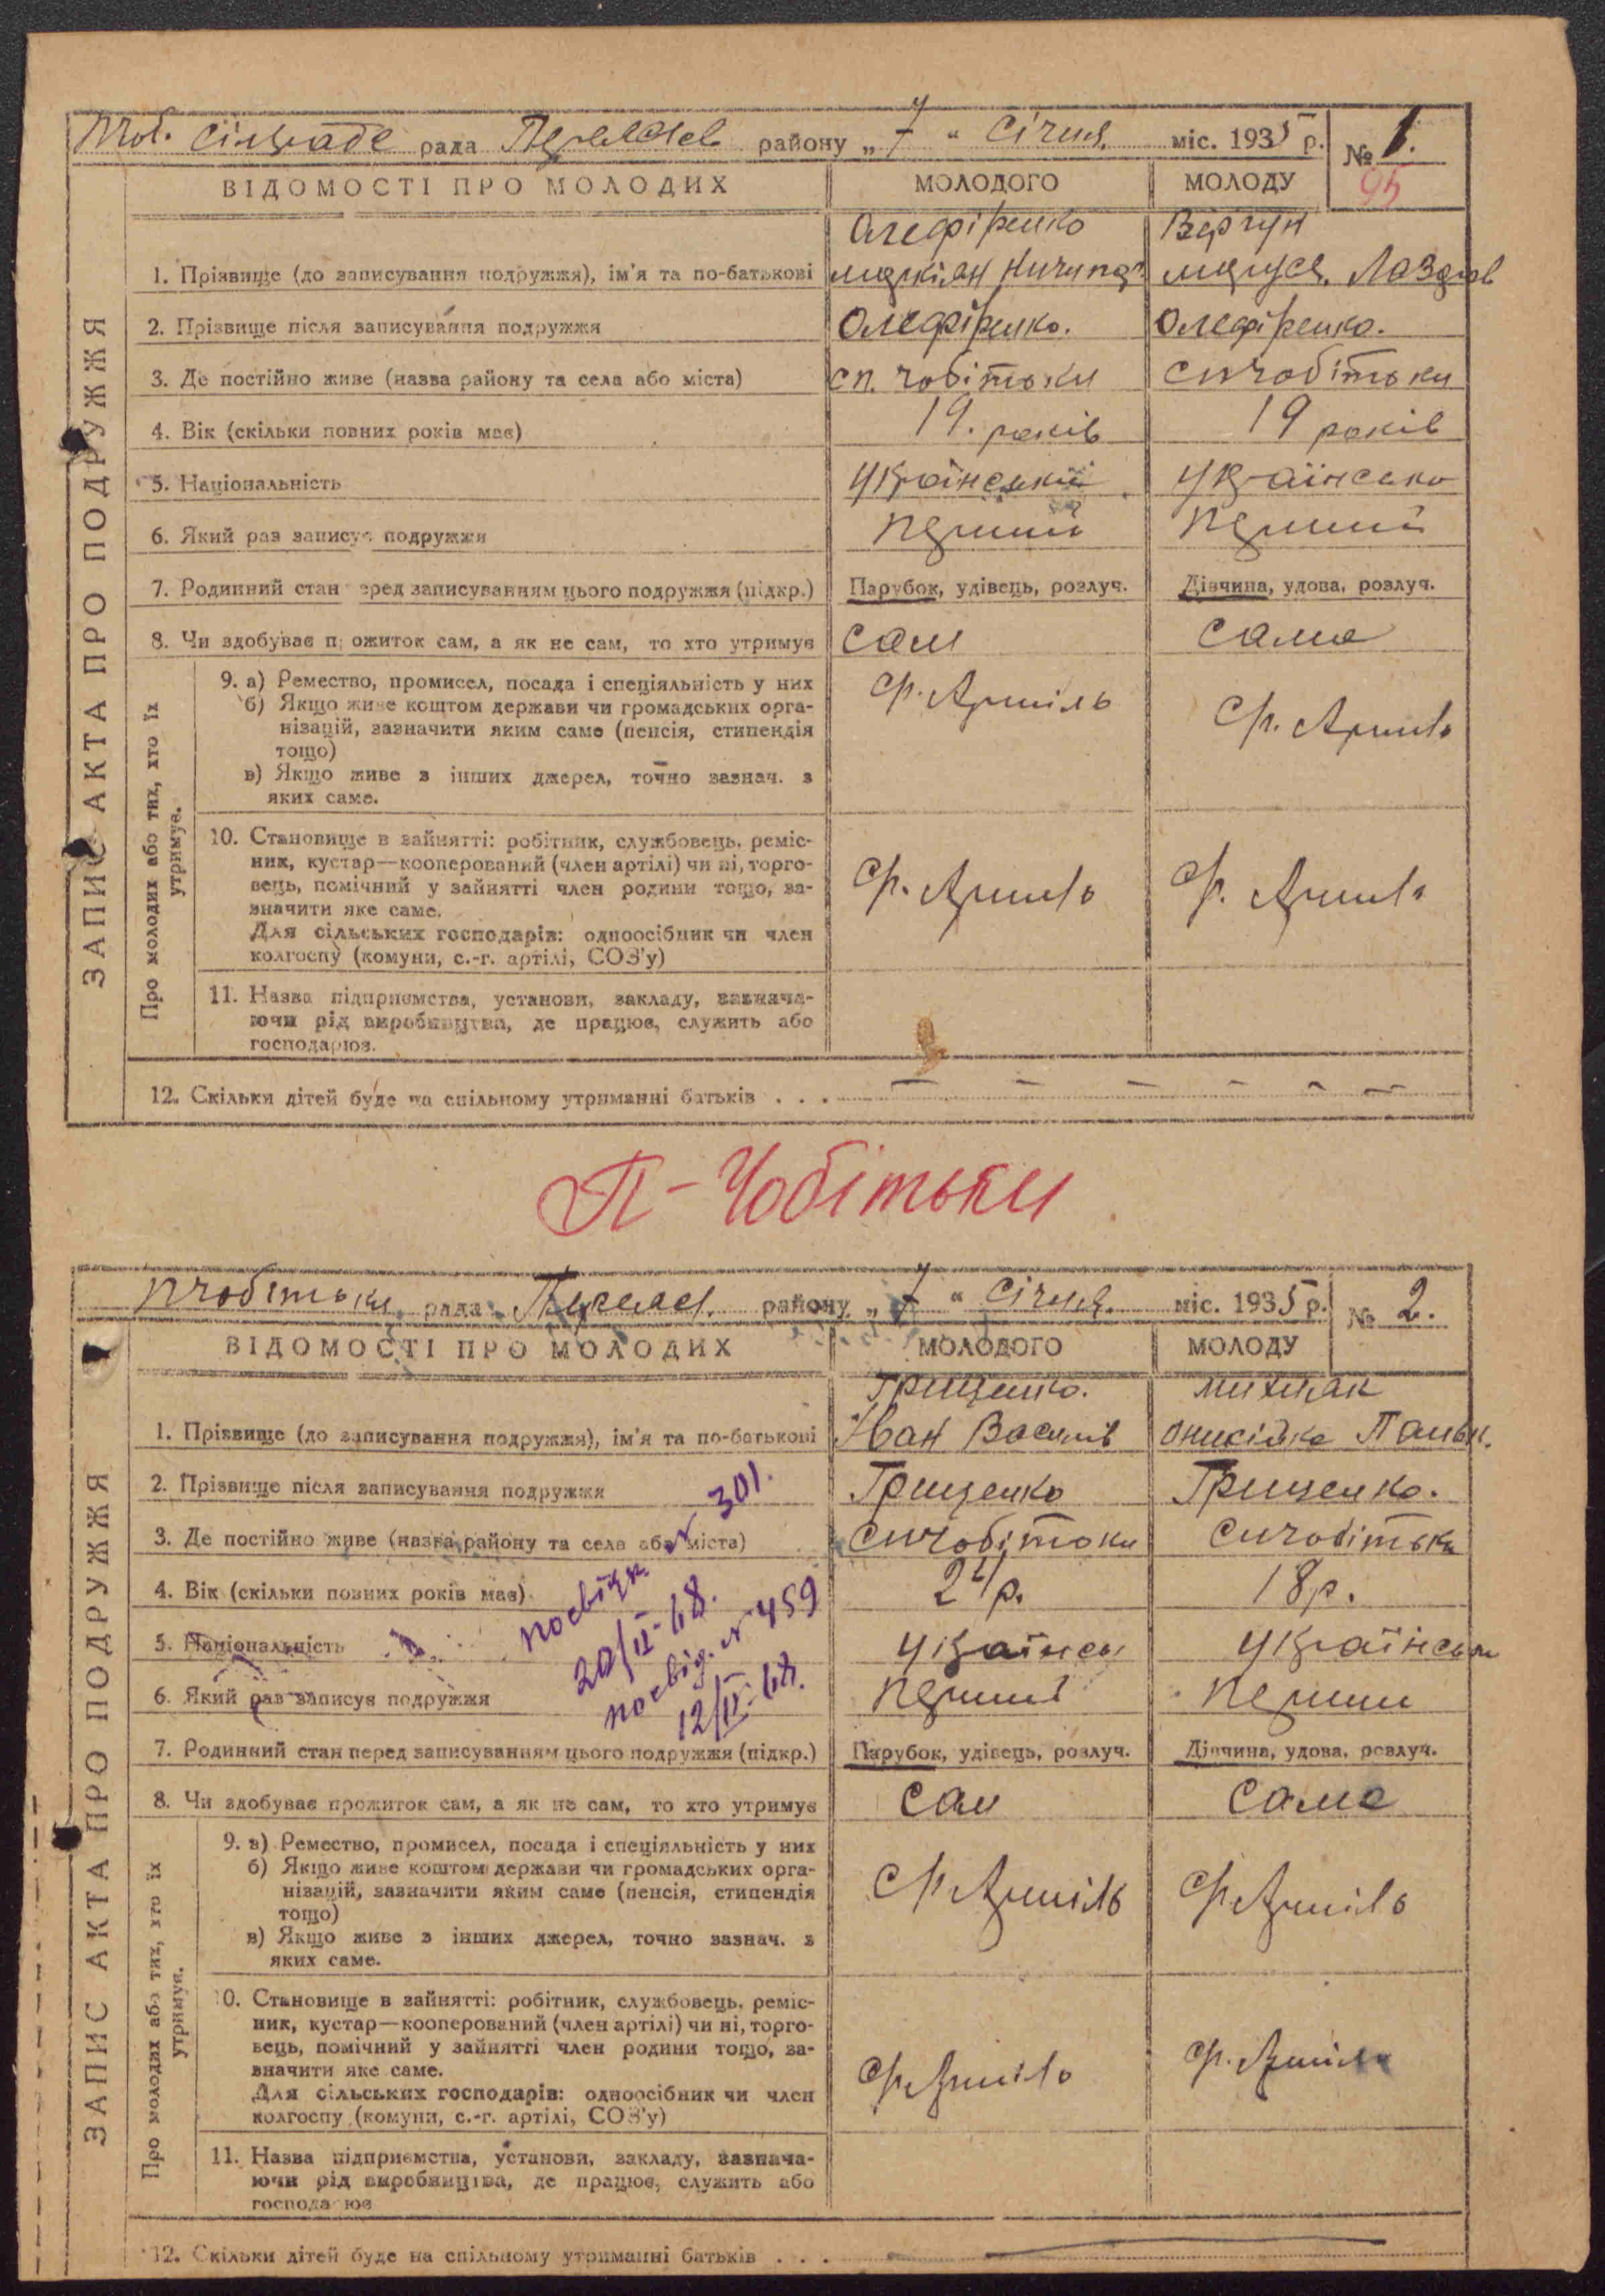 сільрада рада Переяслав району „ 7 “ Січня. міс. 1935 р. № 1.
95
ВІДОМОСТІ ПРО МОЛОДИХ МОЛОДОГО МОЛОДУ
Олефіренко Вергун
1. Прізвище (до записування подружжя), ім'я та по-батькові Маркіян Ничипор Маруся Лазарів
2. Прізвище після записування подружжя Олефіренко. Олефіренко.
3. Де постійно живе (назва району та села або міста) сп. Чобітьки сп Чобітьки
4. Вік (скільки повних років має) 19. років 19 років
5. Національність Український Українсько
6. Який раз записує подружжя перший перший
7. Родинний стан перед записуванням цього подружжя (підкр.) Парубок, удівець, розлуч. Дівчина, удова, розлуч.
8. Чи здобуває прожиток сам, а як не сам, то хто утримує сам сама
ЗАПИС АКТА ПРО ПОДРУЖЖЯ
Про молодих або тих, хто їх утримує.
9. а) Ремество, промисел, посада і спеціяльність у них
б) Якщо живе коштом держави чи громадських орга-
нізацій, зазначити яким саме (пенсія, стипендія
тощо)
в) Якщо живе з інших джерел, точно зазнач. з
яких саме.
Ср. Артіль Ср. Артіль
10. Становище в зайнятті: робітник, службовець, реміс-
ник, кустар—кооперований (член артілі) чи ні, торго-
вець, помічний у зайнятті член родини тощо, за-
значити яке саме.
Для сільських господарів: одноосібник чи член
колгоспу (комуни, с.-г. артілі, СОЗ'у)
Ср. Артіль Ср. Артіль
11. Назва підприємства, установи, закладу, зазнача-
ючи рід виробництва, де працює, служить або
господарює.
12. Скільки дітей буде на спільному утриманні батьків . . . — — — — — —
П-Чобітьки
Пчобітьки рада Переяслав. району „ 7 “ Січня. міс. 1935 р. № 2.
ВІДОМОСТІ ПРО МОЛОДИХ МОЛОДОГО МОЛОДУ
Грищенко.
1. Прізвище (до записування подружжя), ім'я та по-батькові Іван Василів Оникійка
2. Прізвище після записування подружжя Грищенко Грищенко.
3. Де постійно живе (назва району та села або міста) спчобітоки спчобітьки
4. Вік (скільки повних років має) р. 18р.
5. Національність Українсь Українськ
6. Який раз записує подружжя перший перши
посвідк № 301.
20/II-68.
посвід. № 459
12/IV-68.
7. Родинний стан перед записуванням цього подружжя (підкр.) Парубок, удівець, розлуч. Дівчина, удова, розлуч.
8. Чи здобуває прожиток сам, а як не сам, то хто утримує сам сама
ЗАПИС АКТА ПРО ПОДРУЖЖЯ
Про молодих або тих, хто їх утримує.
9. а) Ремество, промисел, посада і спеціяльність у них
б) Якщо живе коштом держави чи громадських орга-
нізацій, зазначити яким саме (пенсія, стипендія
тощо)
в) Якщо живе з інших джерел, точно зазнач. з
яких саме.
Ср Артіль Ср Артіль
10. Становище в зайнятті: робітник, службовець, реміс-
ник, кустар—кооперований (член артілі) чи ні, торго-
вець, помічний у зайнятті член родини тощо, за-
значити яке саме.
Для сільських господарів: одноосібник чи член
колгоспу (комуни, с.-г. артілі, СОЗ'у)
Ср Артіль Ср. Артіль
11. Назва підприємства, установи, закладу, зазнача-
ючи рід виробництва, де працює, служить або
господарює
12. Скільки дітей буде на спільному утриманні батьків . . .